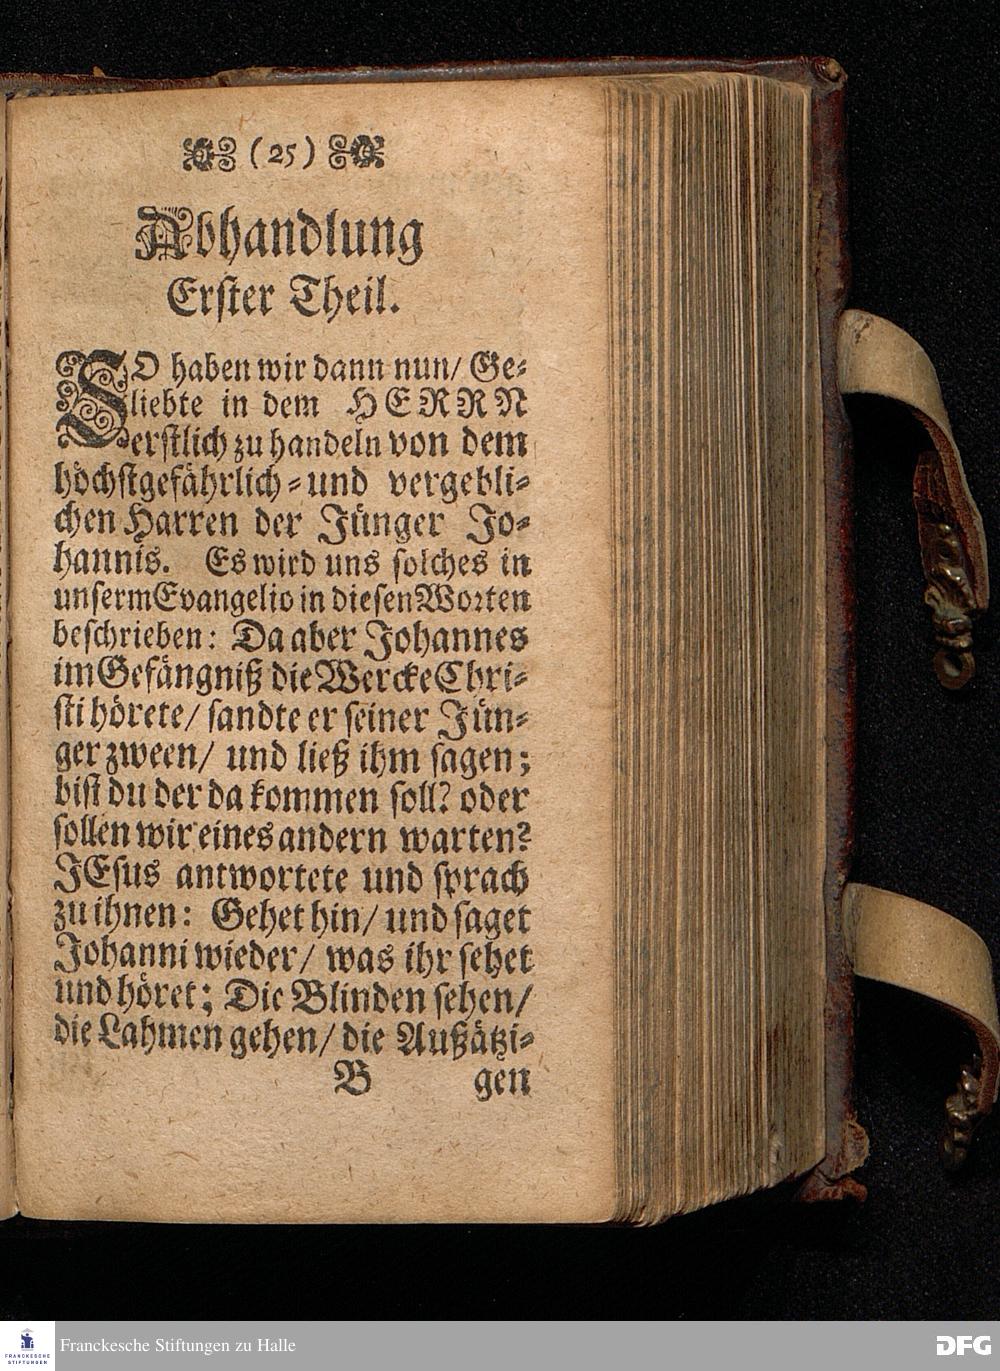 (25)
Abhandlung
Erster Theil.
SO haben wir dann nun/ Ge-
liebte in dem HERRN
erstlich zu handeln von dem
höchstgefährlich-und vergebli-
chen Harren der Jünger Jo-
hannis. Es wird uns solches in
unserm Evangelio in diesen Worten
beschrieben: Da aber Johannes
im Gefängniß die Wercke Chri-
sti hörete/ sandte er seiner Jün-
ger zween/ und ließ ihm sagen;
bist du der da kommen soll? oder
sollen wir eines andern warten?
JEsus antwortete und sprach
zu ihnen: Gehet hin/ und saget
Johanni wieder/ was ihr sehet
und höret; Die Blinden sehen/
die Lahmen gehen/ die Außätzi-
B gen
FRANCKESCHE STIFTUNGEN
Franckesche Stiftungen zu Halle
DFG